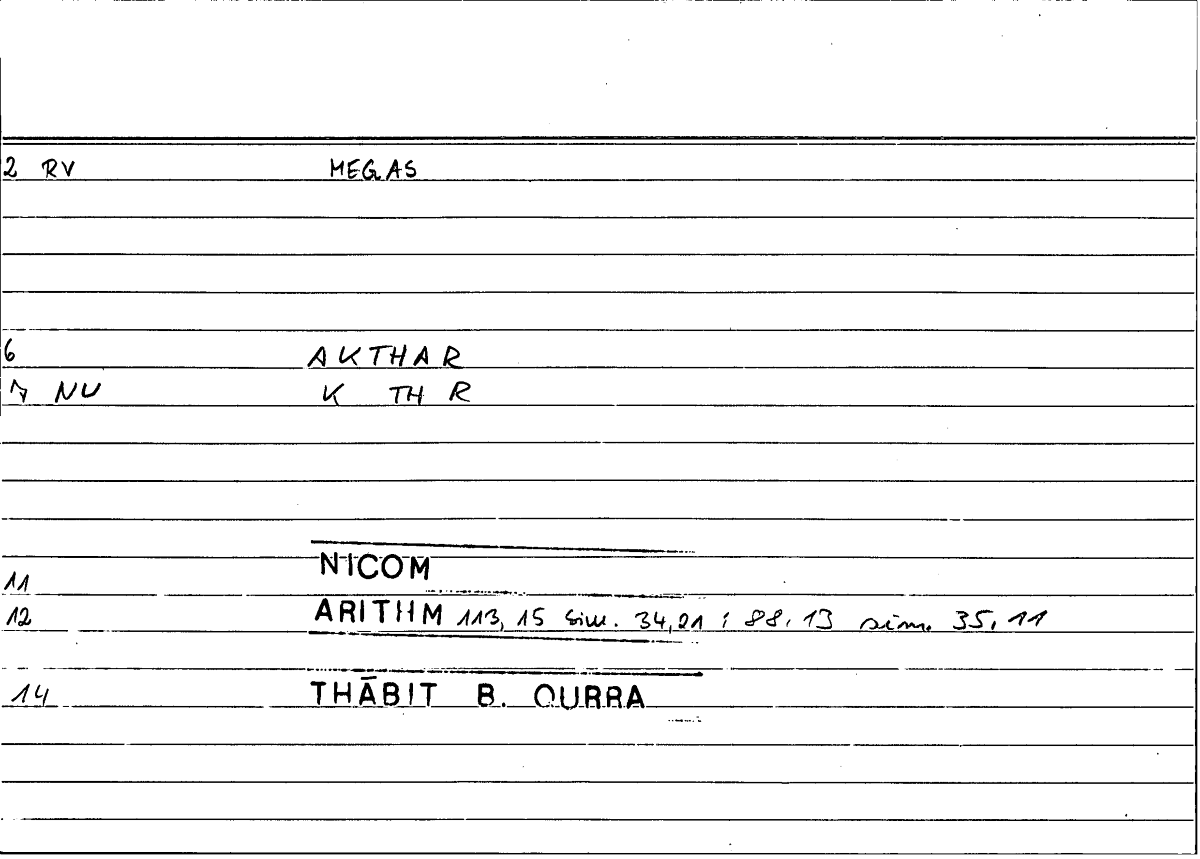 2 RV MEGAS
6 AKTHAR
7 NU K TH R
11 NICOM
12 ARITHM 113, 15 sim. 34,21 ; 88, 13 sim. 35, 11
14 THĀBIT B. QURRA